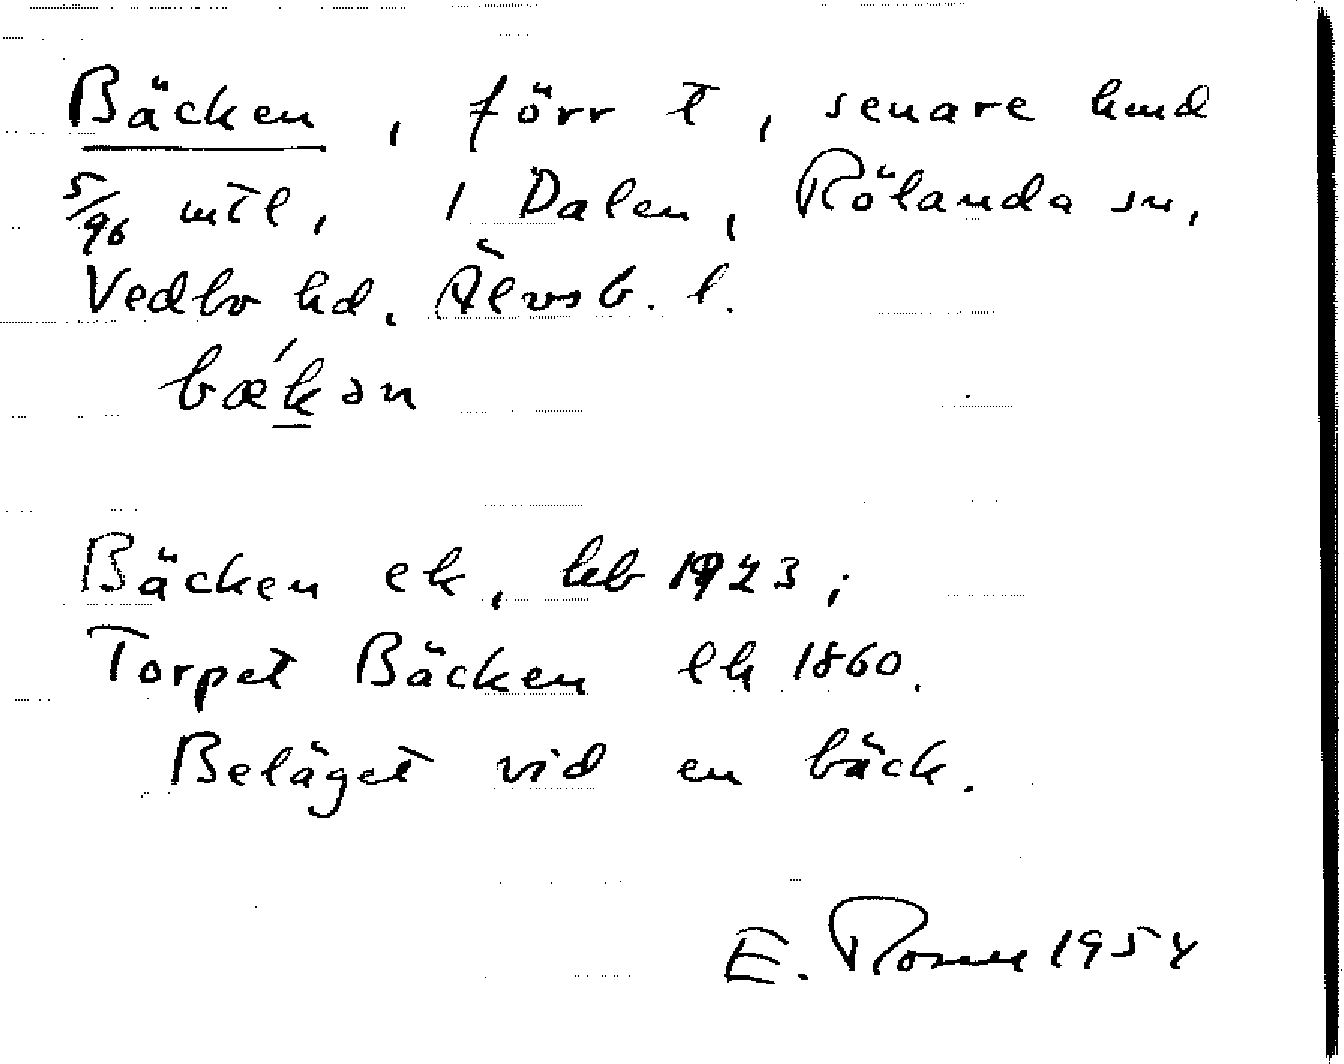 Bäcken, förr t, senare hmd
5/96 mtl, 1 Dalen, Rölanda sn,
Vedbo hd. Älvsb. l.
bæ´kən
Bäcken ek, hb 1923;
Torpet Bäcken lh 1860.
Beläget vid en bäck.
E. 1954